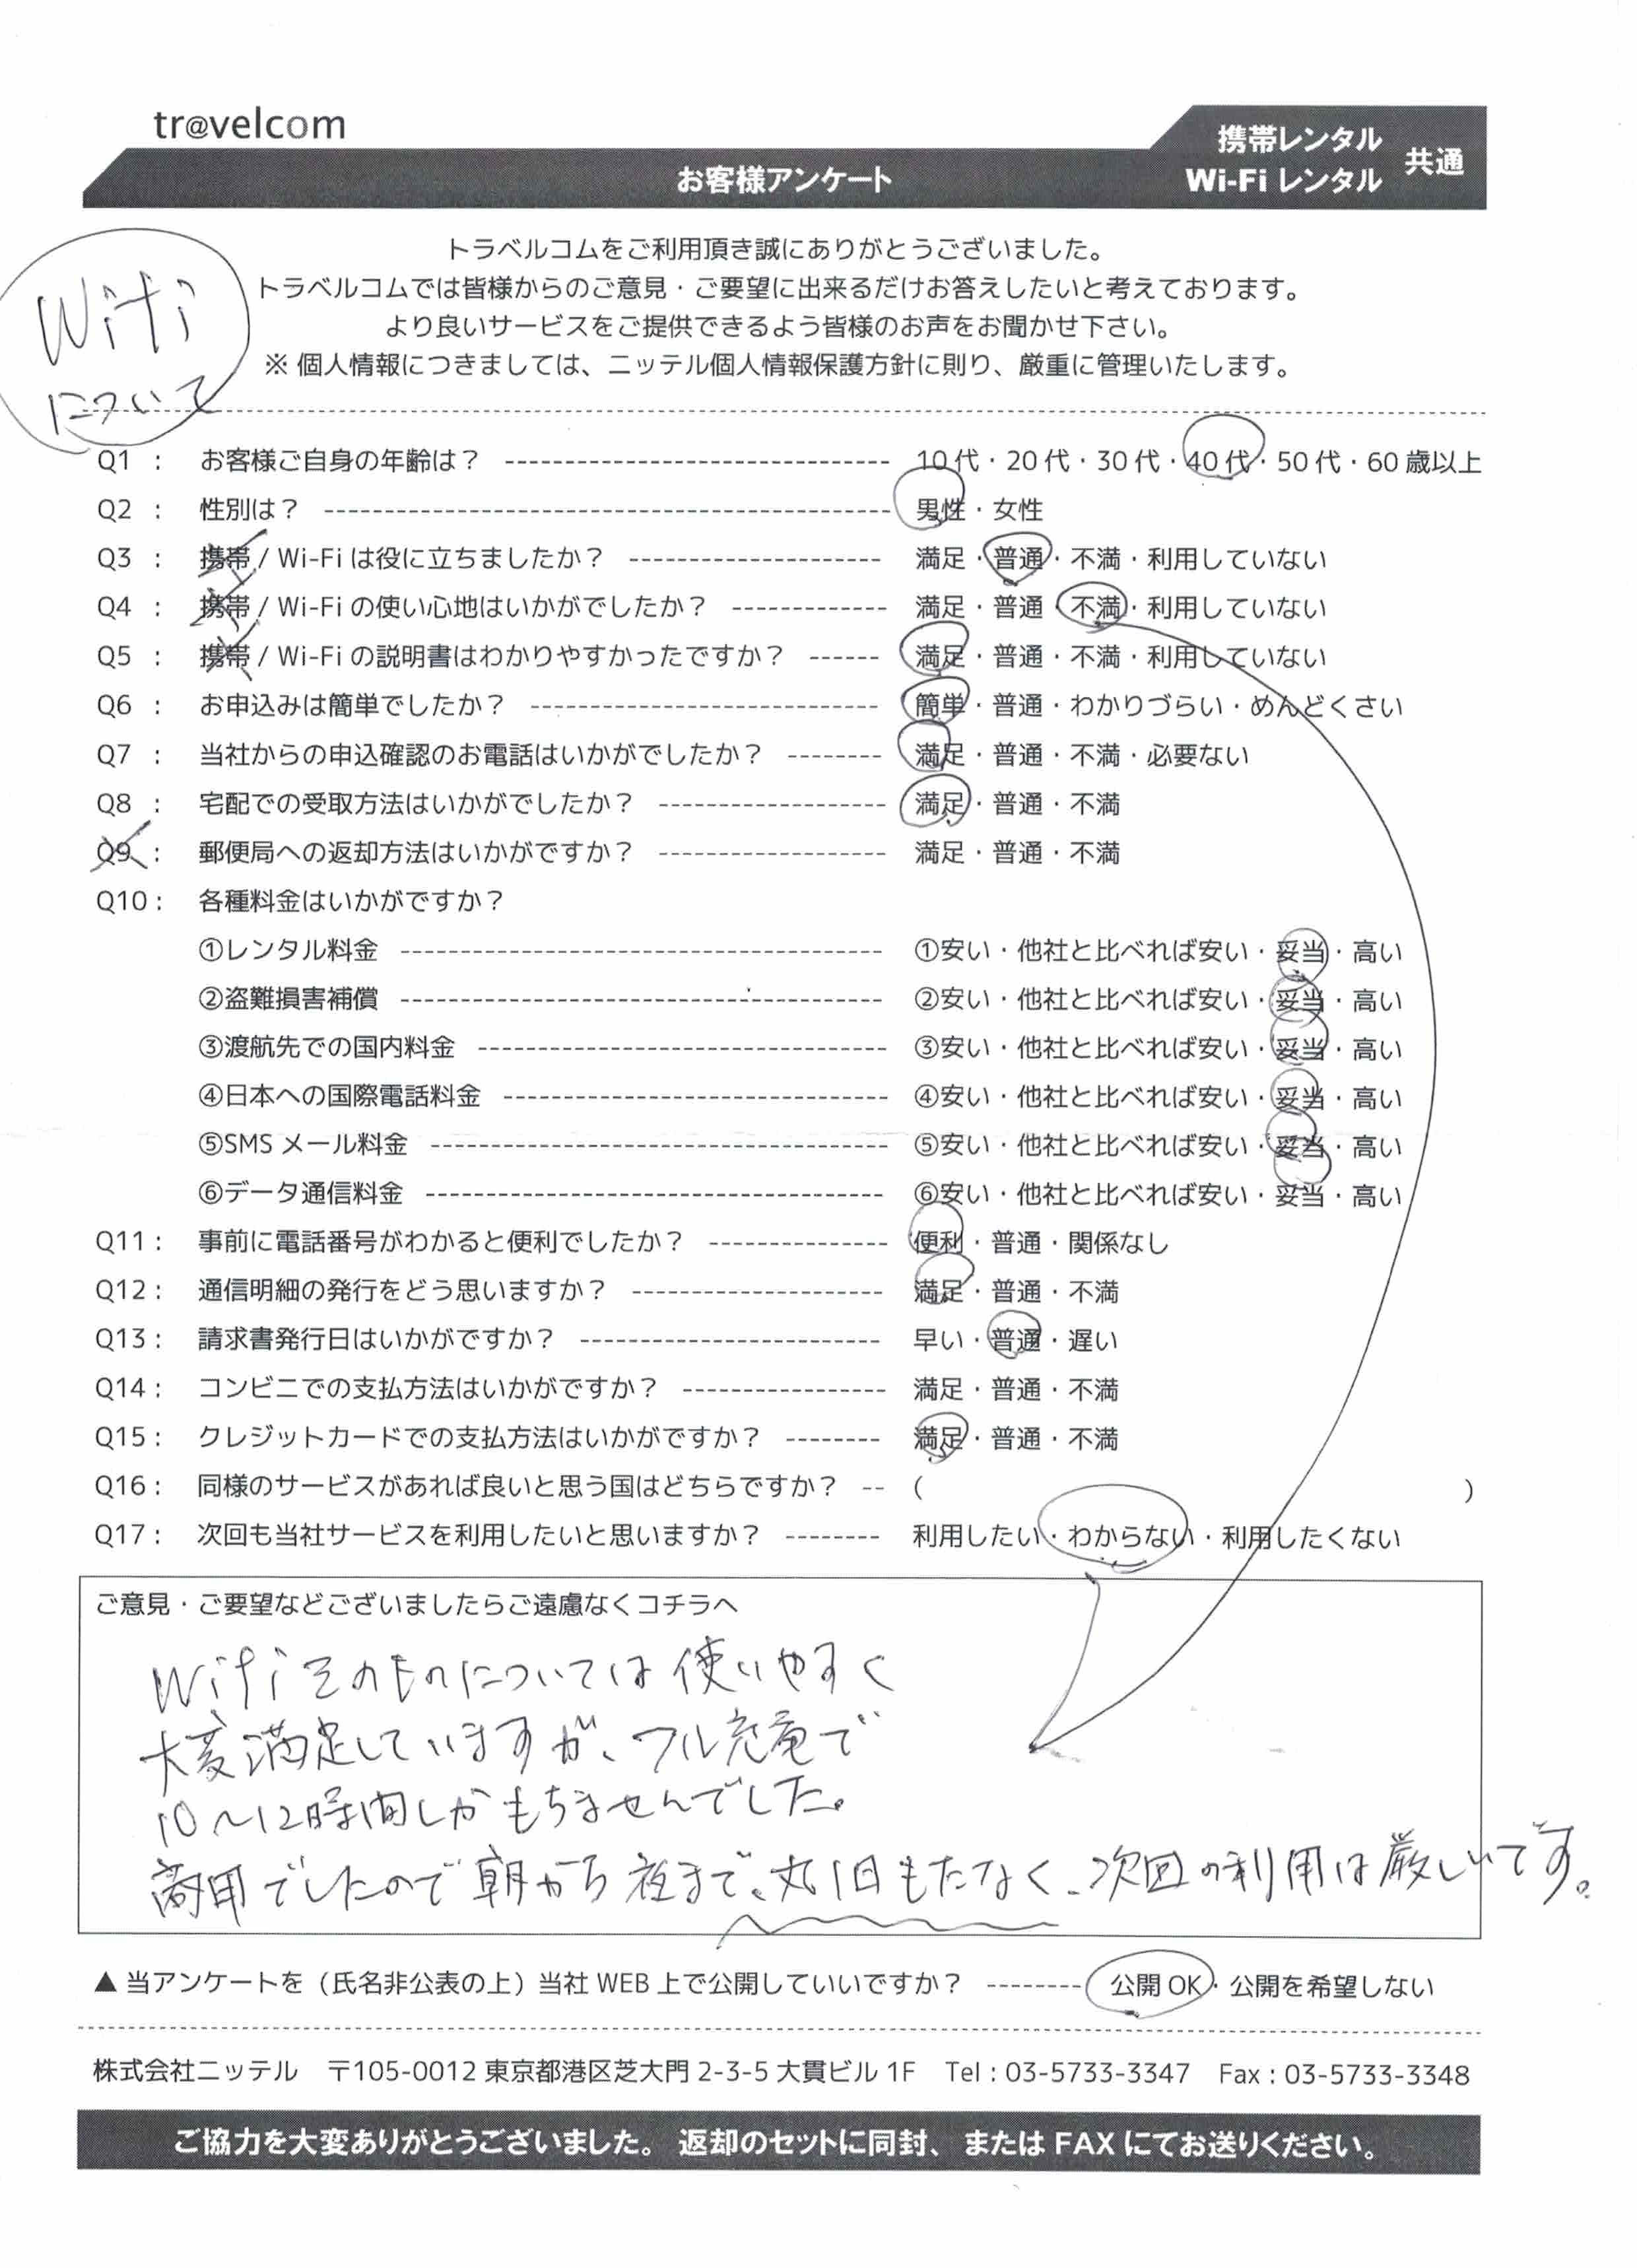 tr@velcom
携帯レンタル
Wi-Fi レンタル
共通
お客様アンケート
トラベルコムをご利用頂き誠にありがとうございました。
トラベルコムでは皆様からのご意見・ご要望に出来るだけお答えしたいと考えております。
より良いサービスをご提供できるよう皆様のお声をお聞かせ下さい。
※ 個人情報につきましては、ニッテル個人情報保護方針に則り、厳重に管理いたします。
Wifi
について
Q1 : お客様ご自身の年齢は？ 10代・20代・30代・40代・50代・60歳以上
Q2 : 性別は？ 男性・女性
Q3 : 携帯 / Wi-Fi は役に立ちましたか？ 満足・普通・不満・利用していない
Q4 : 携帯 / Wi-Fi の使い心地はいかがでしたか？ 満足・普通・不満・利用していない
Q5 : 携帯 / Wi-Fi の説明書はわかりやすかったですか？ 満足・普通・不満・利用していない
Q6 : お申込みは簡単でしたか？ 簡単・普通・わかりづらい・めんどくさい
Q7 : 当社からの申込確認のお電話はいかがでしたか？ 満足・普通・不満・必要ない
Q8 : 宅配での受取方法はいかがでしたか？ 満足・普通・不満
Q9 : 郵便局への返却方法はいかがですか？ 満足・普通・不満
Q10 : 各種料金はいかがですか？
①レンタル料金 ①安い・他社と比べれば安い・妥当・高い
②盗難損害補償 ②安い・他社と比べれば安い・妥当・高い
③渡航先での国内料金 ③安い・他社と比べれば安い・妥当・高い
④日本への国際電話料金 ④安い・他社と比べれば安い・妥当・高い
⑤SMS メール料金 ⑤安い・他社と比べれば安い・妥当・高い
⑥データ通信料金 ⑥安い・他社と比べれば安い・妥当・高い
Q11 : 事前に電話番号がわかると便利でしたか？ 便利・普通・関係なし
Q12 : 通信明細の発行をどう思いますか？ 満足・普通・不満
Q13 : 請求書発行日はいかがですか？ 早い・普通・遅い
Q14 : コンビニでの支払方法はいかがですか？ 満足・普通・不満
Q15 : クレジットカードでの支払方法はいかがですか？ 満足・普通・不満
Q16 : 同様のサービスがあれば良いと思う国はどちらですか？ ( )
Q17 : 次回も当社サービスを利用したいと思いますか？ 利用したい・わからない・利用したくない
ご意見・ご要望などございましたらご遠慮なくコチラへ
Wifiそのものについては使いやすく
大変満足していますが、フル充電で
10〜12時間しかもちませんでした。
商用でしたので朝から夜まで、丸1日もたなく、次回の利用は厳しいです。
▲ 当アンケートを（氏名非公表の上）当社 WEB 上で公開していいですか？ 公開 OK・公開を希望しない
株式会社ニッテル 〒105-0012 東京都港区芝大門 2-3-5 大貫ビル 1F Tel : 03-5733-3347 Fax : 03-5733-3348
ご協力を大変ありがとうございました。 返却のセットに同封、または FAX にてお送りください。